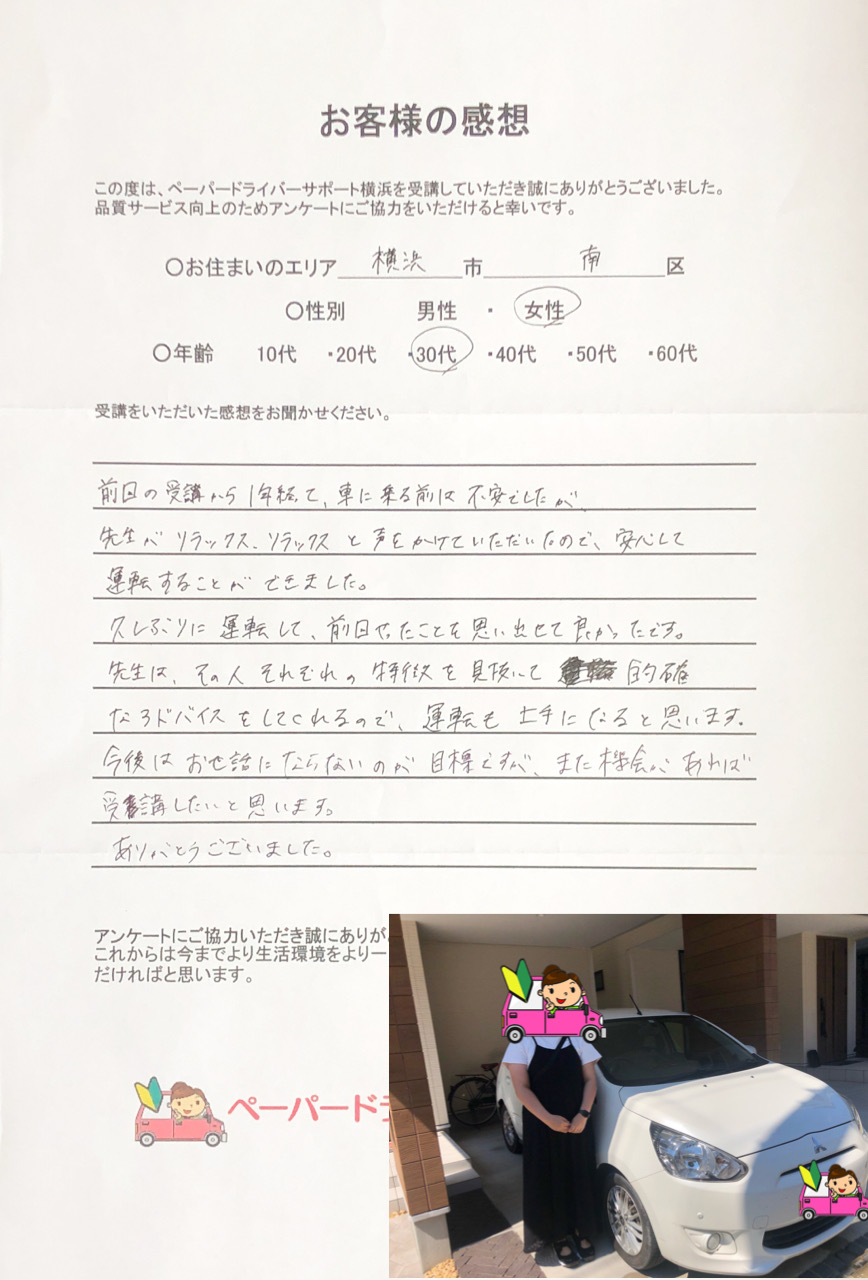 お客様の感想
この度は、ペーパードライバーサポート横浜を受講していただき誠にありがとうございました。
品質サービス向上のためアンケートにご協力をいただけると幸いです。
〇お住まいのエリア 横浜 市 南 区
〇性別 男性 ・ 女性
〇年齢 10代 ・20代 ・30代 ・40代 ・50代 ・60代
受講をいただいた感想をお聞かせください。
前回の受講から1年経って、車に乗る前は不安でしたが、
先生がリラックス、リラックスと声をかけていただいたので、安心して
運転することができました。
久しぶりに運転して、前回やったことを思い出せて良かったです。
先生は、その人それぞれの特徴を見抜いて 的確
なアドバイスをしてくれるので、運転も上手になると思います。
今後はお世話にならないのが目標ですが、また機会があれば
受講したいと思います。
ありがとうございました。
アンケートにご協力いただき誠にありが
これからは今までより生活環境をより一
だければと思います。
ペーパード